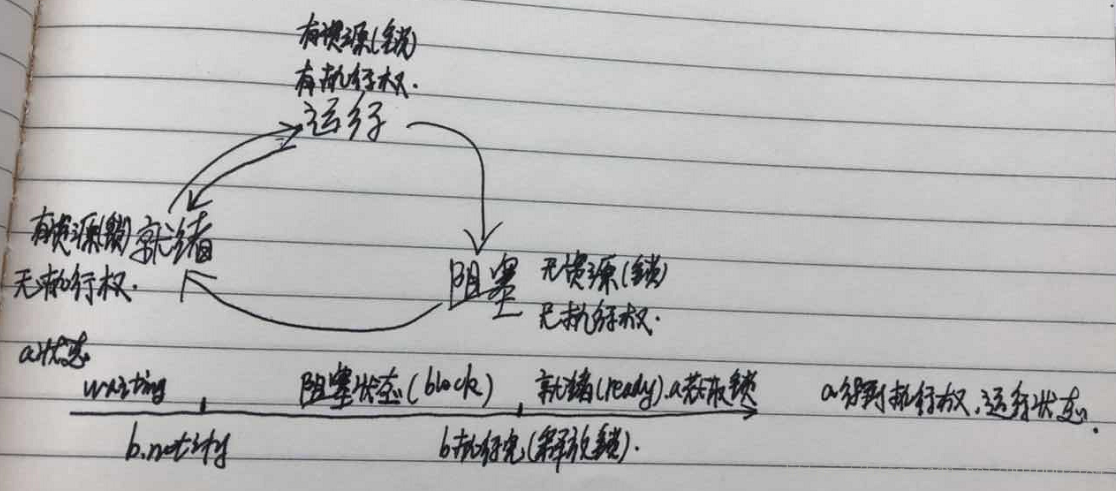 有资源(锁)
有执行权.
运行
有资源(锁)就绪
无执行权.
阻塞 无资源(锁)
无执行权.
a状态
waiting 阻塞状态(block) 就绪(ready).a获取锁 a得到执行权,运行状态.
b.notify b执行完(释放锁).